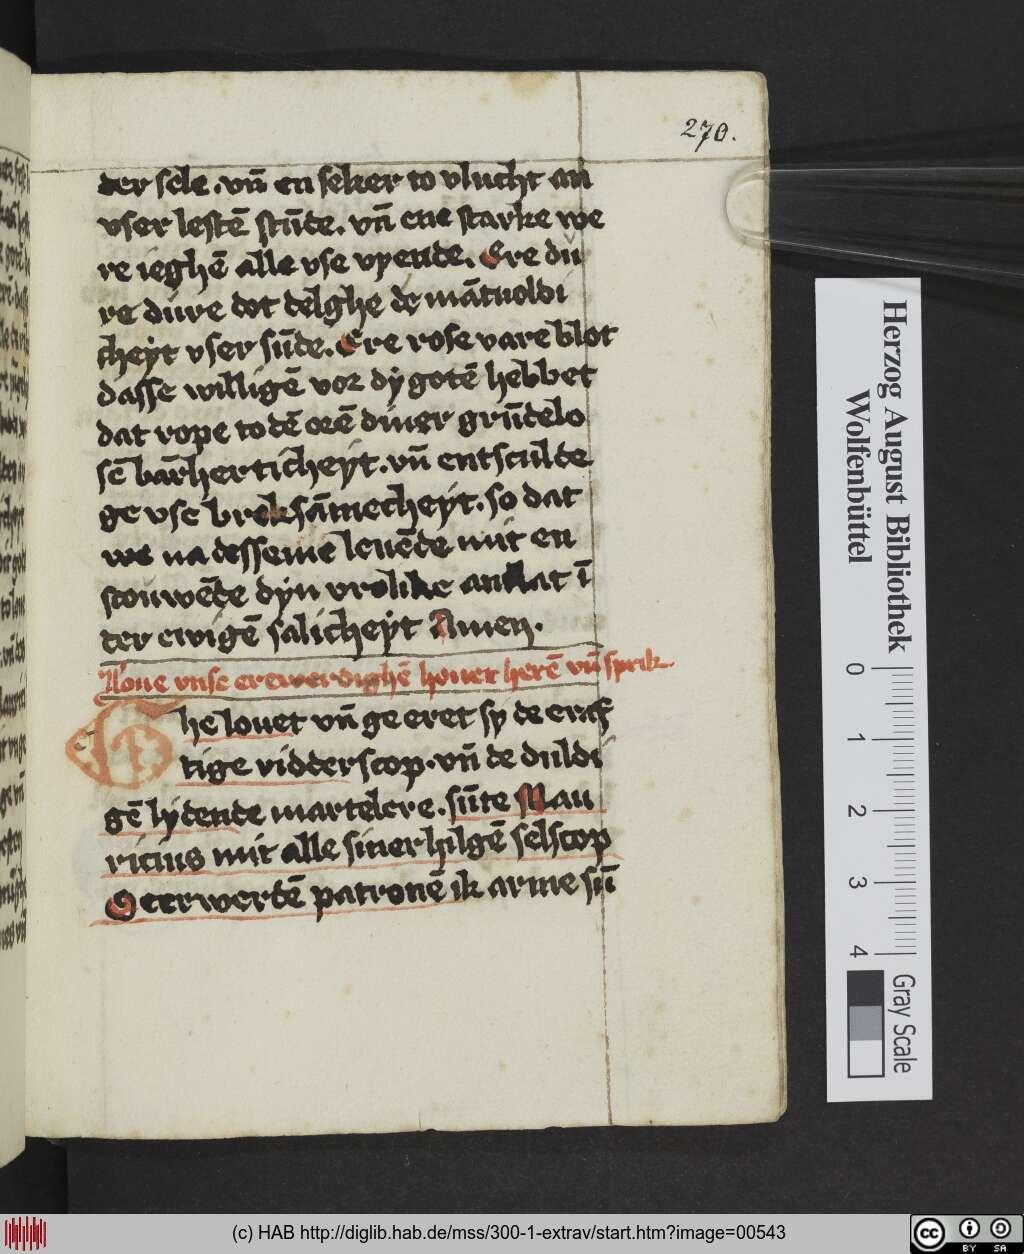 270.
der sele. vn̄ en seker to vlucht an
vser lestē stūde. vn̄ ene starke we
re ieghē alle vse vyende. Ere du
re dure dot delghe de māuoldi
cheyt vser sūde. Ere rose vare blot
dasse willigē vor dy gotē hebbet
dat rope to dē orē diner grūdelo
sē barhertiheyt. vn̄ entsculde
ge vse breksāmecheyt. so dat
we na desseme leuēde mit en
scouwēde dyn vrolike anlat ī
der ewigē salicheyt Amen.
vnse erewerdighē houet herē vn̄ sprik
Ghe louet vn̄ ge eret sy de eraf
tige ridderscop. vn̄ de duldi
gē lydende martelere. sūte Mau
ricius mit alle siner hilgē selscop
O eerwerdē patronē ik arme sū
Herzog August Bibliothek
Wolfenbüttel
0 1 2 3 4
Gray Scale
(c) HAB http://diglib.hab.de/mss/300-1-extrav/start.htm?image=00543
cc BY SA